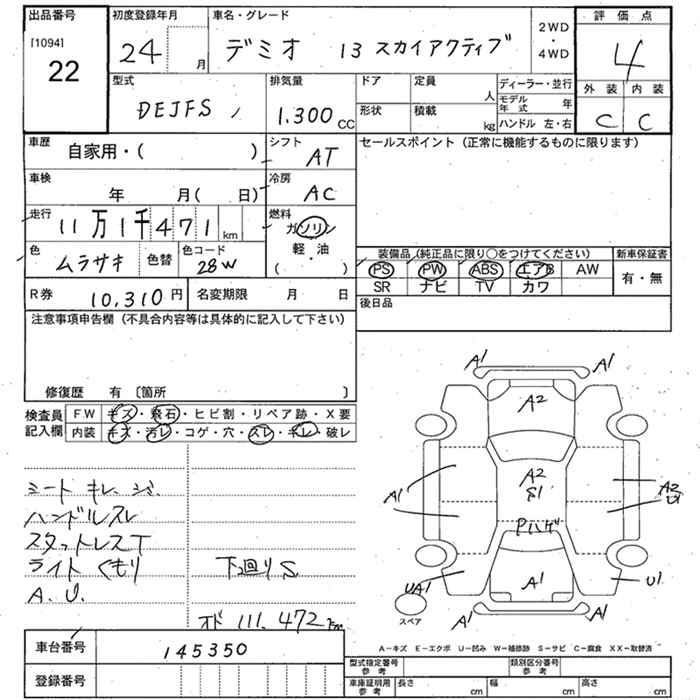 出品番号
[1094]
22
初度登録年月
24 月
車名・グレード
デミオ 13 スカイアクティブ
2WD
・
4WD
評価点
4
外装 内装
C C
型式
DEJFS
排気量
1.300 CC
ドア 定員
人
形状 積載
kg
ディーラー・並行
モデル年式 年
ハンドル 左・右
車歴
自家用・( )
シフト
AT
セールスポイント (正常に機能するものに限ります)
車検
年 月( 日)
冷房
AC
走行
11万1千471 km
燃料
ガソリン
軽・油
( )
色
ムラサキ
色替
色コード
28W
装備品 (純正品に限り○をつけてください)
新車保証書
PS PW ABS エアB AW
SR ナビ TV カワ
有・無
R券
10,310円
名変期限 月 日
後日品
注意事項申告欄 (不具合内容等は具体的に記入して下さい)
修復歴 有 〔箇所 〕
検査員
記入欄
FW キズ・飛石・ヒビ割・リペア跡・X要
内装 キズ・汚レ・コゲ・穴・スレ・キレ・破レ
シート キレ、シミ
ハンドルスレ
スタットレスT
ライト くもり
A.U.
下回りS
オド 111.472km
A1 A1
A2
A2
S1
Pハゲ
A1
A1
A2
U1
UA1
U1
A1 A1
スペア
車台番号
145350
登録番号
A−キズ E−エクボ U−凹み W−補修跡 S−サビ C−腐食 XX−取替済
型式指定番号
参考
類別区分番号
参考
車庫証明用
参考
長さ cm 幅 cm 高さ cm